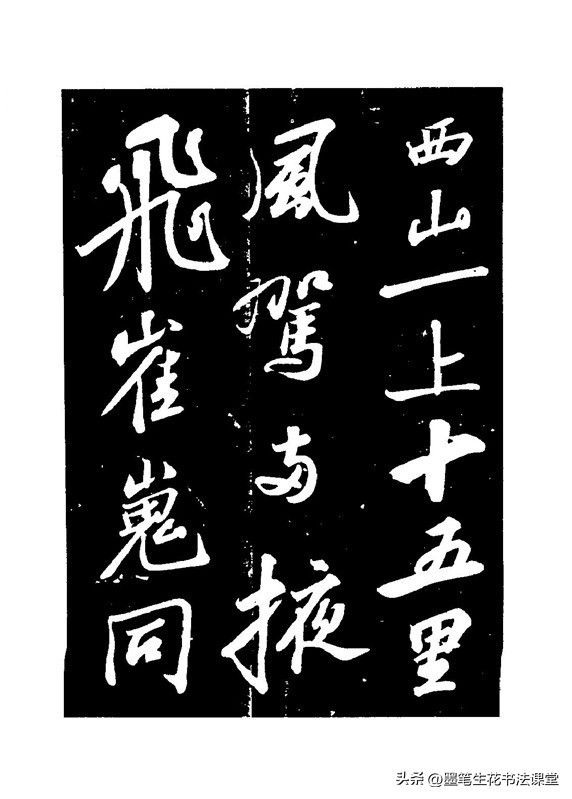 西山一上十五里
風駕两掖
飛崔嵬同
头条 @墨笔生花书法课堂